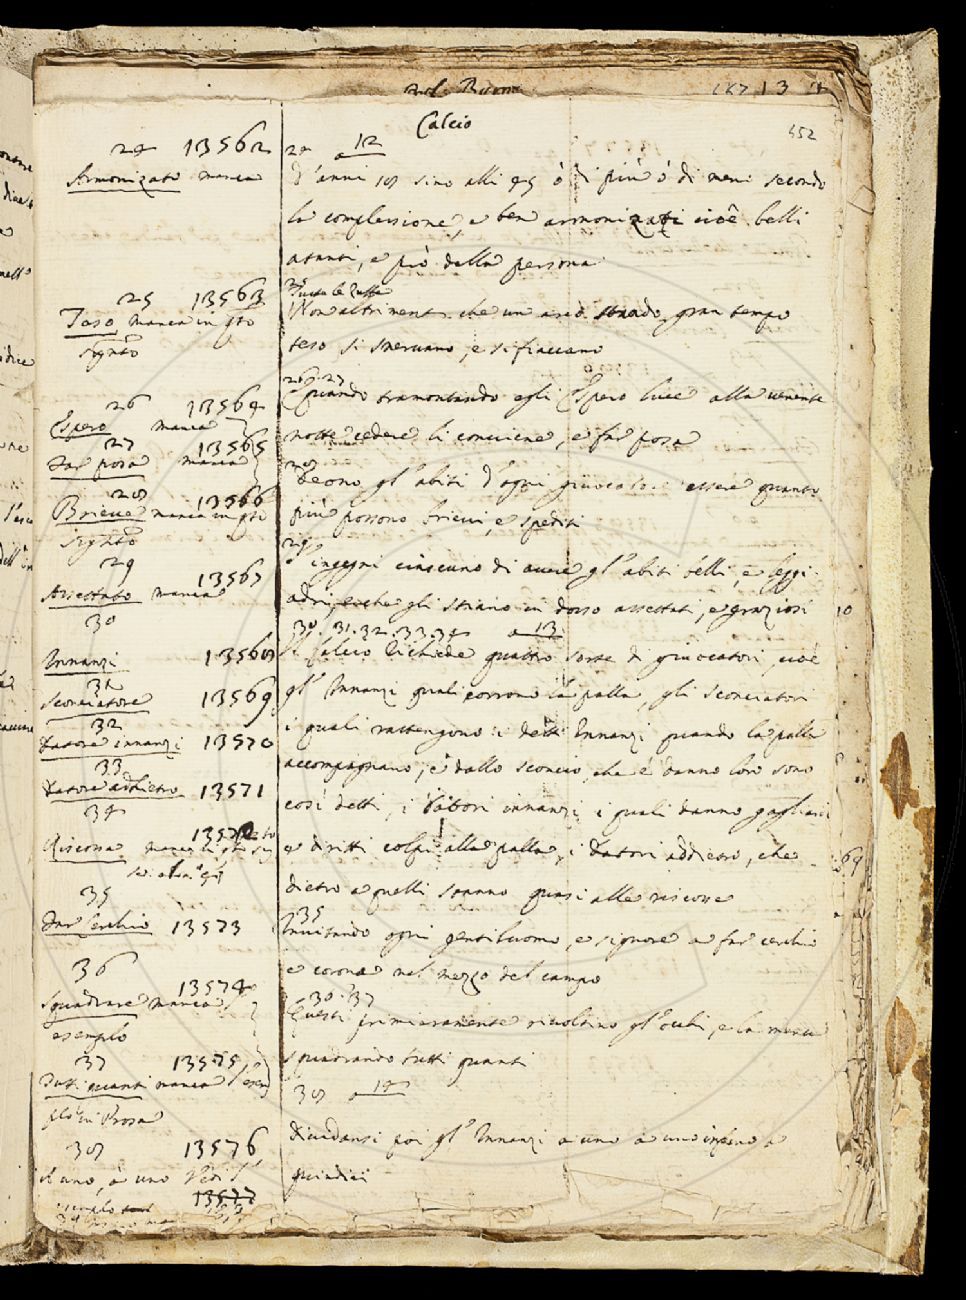 Calcio
652
24 13562
Armonizato manca
24 a 12
D'anni 18 sino alli 45 ò di più ò di meno secondo
la complessione, e ben armonizati cioè belli
atanti, e prò della persona
25 13563
Teso manca in q.to
Signto
25
Non altrimenti che un arco stato gran tempo
teso si snervano, e si fiaccano
26 13564
Espero manca
27 13565
Far posa manca
26 27
Quando tramontando egli Espero luce alla vegnente
notte cedere li conviene, e far posa
28 13566
Brieve manca in q.to
Signto
28
Deono gl'abiti d'ogni giuocatore essere quanto
più possono brievi, e spediti
29 13567
Assettato manca
29
S'ingegni ciascuno di avere gl'abiti belli, e leggi
adri, e che gli stiano in dosso assettati, e graziosi
30
Innanzi 13568
30. 31. 32. 33. 34 a 13
Il Calcio richiede quattro sorte di giuocatori, cioè
31
Sconciatore 13569
gl'Innanzi quali corrono la palla, gli sconciatori
32
Datore innanzi 13570
i quali rattengono i detti Innanzi quando la palla
33
Datore addietro 13571
accompagnano, e dallo sconcio, che e' danno loro sono
così detti, i Datori innanzi i quali danno gagliardi
34 13572
Riscossa manca
e diritti colpi alla palla, i Datori addietro, che
dietro a quelli stanno quasi alle riscosse
35
Far Cerchio 13573
35
Invitando ogni gentiluomo, e signore a far cerchio
e corona nel mezzo del campo
36 13574
Squadrare manca
esemplo
37 13575
Tutti quanti manca l'esem
plo in Prosa
36. 37
Questi primieramente rivoltino gl'occhi, e la mente
squadrando tutti quanti
38 13576
A uno, à uno Vedi l'
38 a 14
Dividansi poi gl'Innanzi a uno a uno infino a
quindici
13577